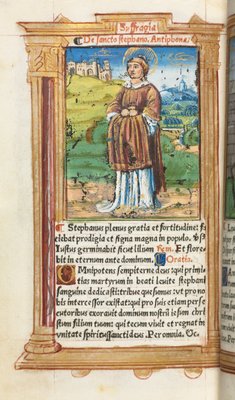 Suffragia
De sancto stephano. Antiphona.
Stephanus plenus gratia et fortitudine: fa
ciebat prodigia et signa magna in populo. ℣.
Iustus germinabit sicut lilium Rem. Et flore
bit in eternum ante dominum. Oratio.
OMnipotens sempiterne deus: qui primi
tias martyrum in beati leuite stephani
sanguine dedicasti: tribue quesumus: vt pro no
bis intercessor existat: qui pro suis etiam perse
cutoribus exorauit dominum nostrum iesum christum
filium tuum: qui tecum viuit et regnat in
vnitate spiritussancti deus. Per omnia. Oc.